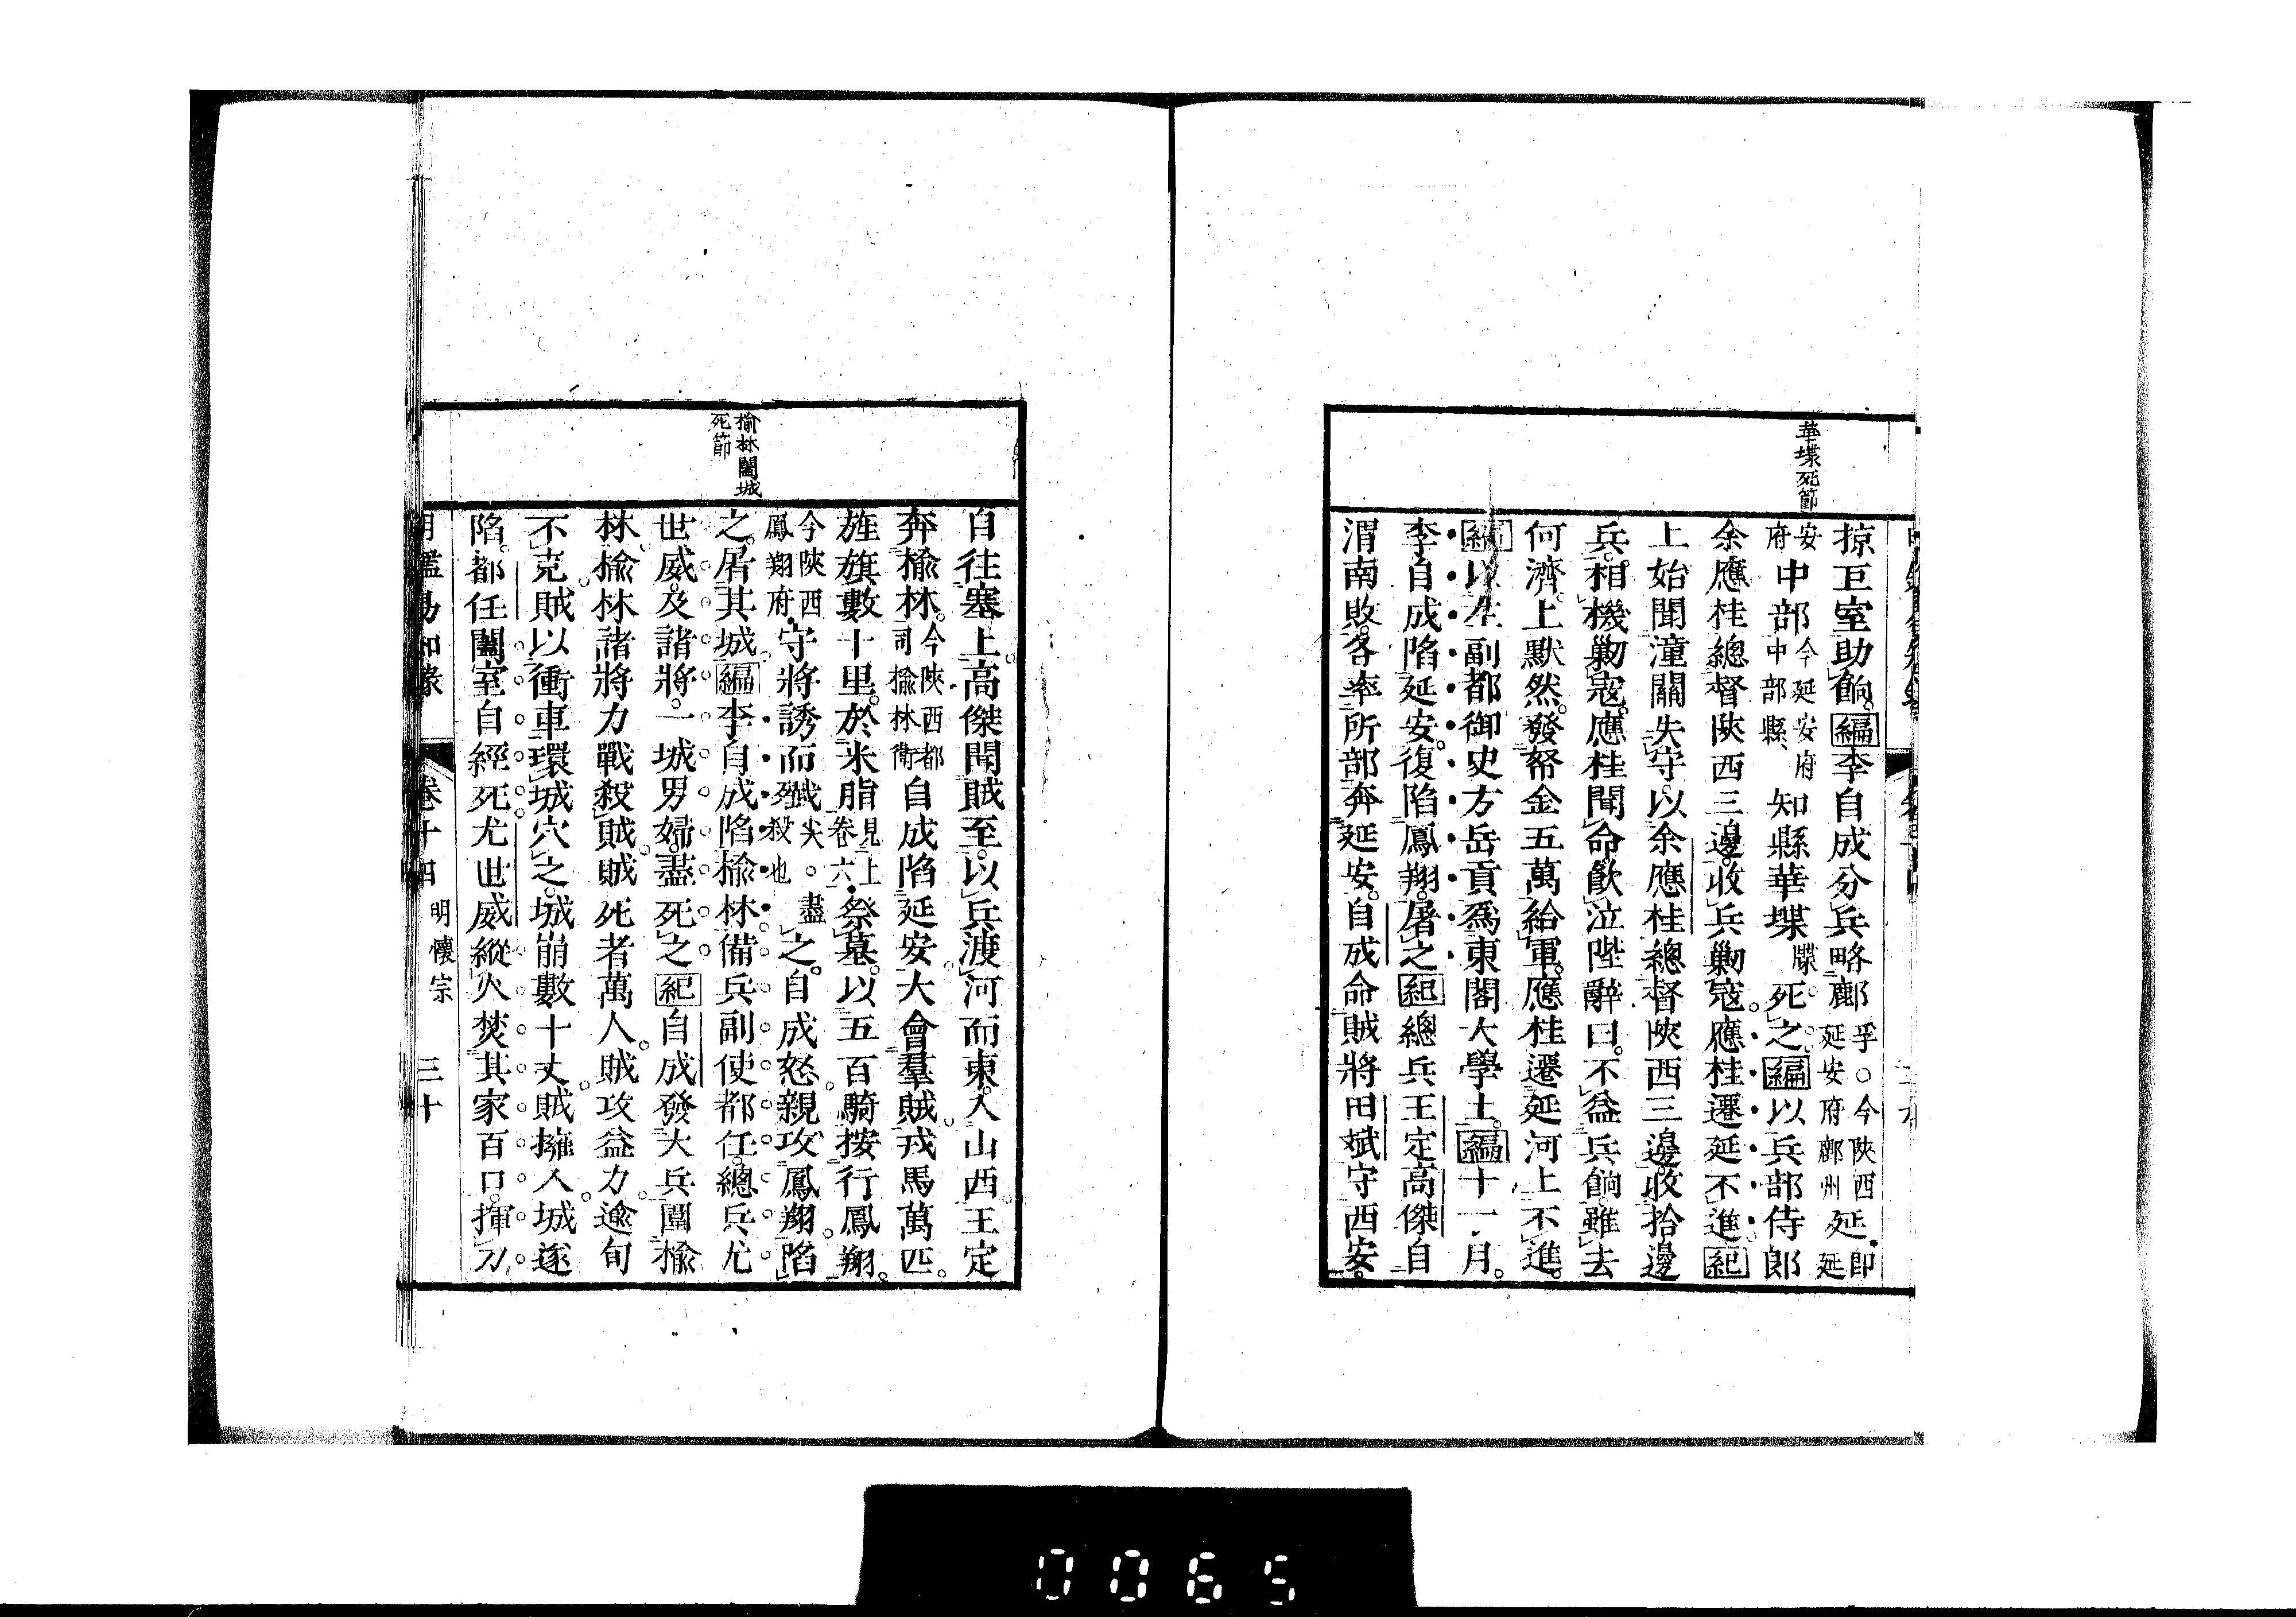 華堞死節
掠巨室助餉。編李自成分兵略鄜孚○今陝西延安府鄜州延即延
安府中部今延安府中部縣、知縣華堞牒。死之編以兵部侍郎
余應桂總督陝西三邊。收兵剿寇。應桂遷延不進。紀
上始聞潼關失守。以余應桂總督陝西三邊。收拾邊
兵。相機剿寇。應桂聞命。飲泣陛辭曰。不益兵餉。雖去
何濟。上默然。發帑金五萬給軍。應桂遷延河上不進。
編以左副都御史方岳貢爲東閣大學士。編十一月。
李自成陷延安。復陷鳳翔。屠之紀總兵王定高傑自
渭南敗。各率所部奔延安。自成命賊將田斌守西安。
自往塞上。高傑聞賊至。以兵渡河而東。入山西王定
奔榆林。今陝西都司榆林衛自成陷延安大會羣賊。戎馬萬匹。
旌旗數十里。於米脂見上卷六祭墓。以五百騎按行鳳翔。
今陝西鳳翔府守將誘而殲尖。盡殄殺也之。自成怒。親攻鳳翔陷
之。屠其城編李自成陷榆林。備兵副使都任。總兵尤
世威。及諸將。一城男婦。盡死之紀自成發大兵圍榆
林。榆林諸將力戰殺賊。賊死者萬人。賊攻益力。逾旬
不克。賊以衝車環城穴之。城崩數十丈。賊擁入城。遂
陷。都任闔室自經死。尤世威縱火焚其家百口。揮刀
榆林闔城
死節
卷十四 明懷宗 三十
0065